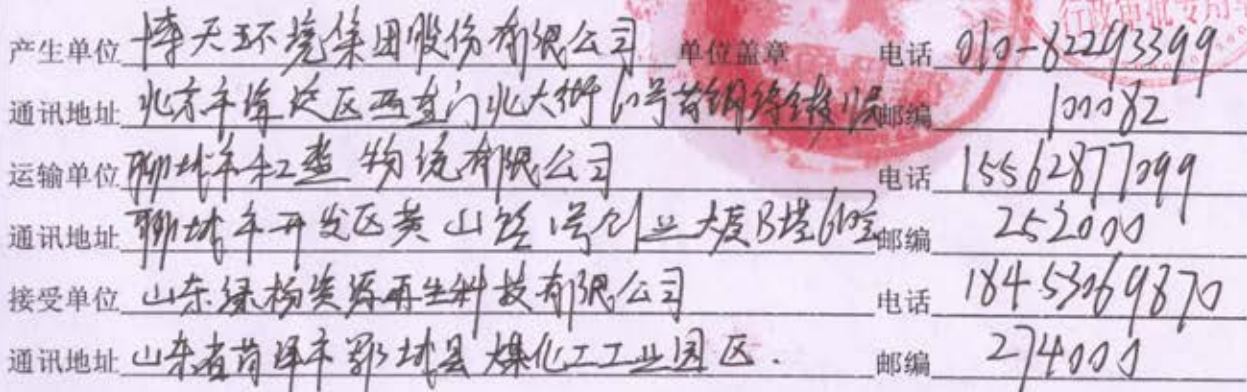 行政审批专用章
产生单位 博天环境集团股份有限公司 单位盖章 电话 010-82293399
通讯地址 北京市海淀区西直门北大街60号首钢综合楼 邮编 100082
运输单位 聊城市 物流有限公司 电话 15562877099
通讯地址 聊城市开发区黄山路1号创业大厦B塔 邮编 252000
接受单位 山东绿杨资源再生科技有限公司 电话 18453069870
通讯地址 山东省菏泽市鄄城县煤化工工业园区. 邮编 274000